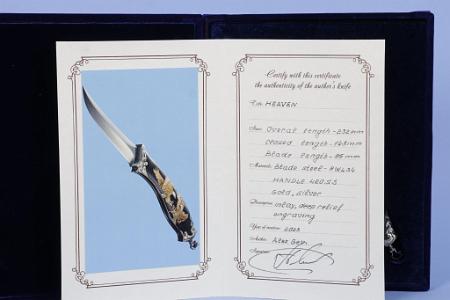 Certify with this certificate
the authenticity of the author's knife
HEAVEN
Sizes Overal length-232mm
closed length-
Blade length-
Materials Blade steel-
HANDLE 420.SS
Gold, silver
Description inlay, deep relief
engraving
Year of creation
Author
Signature